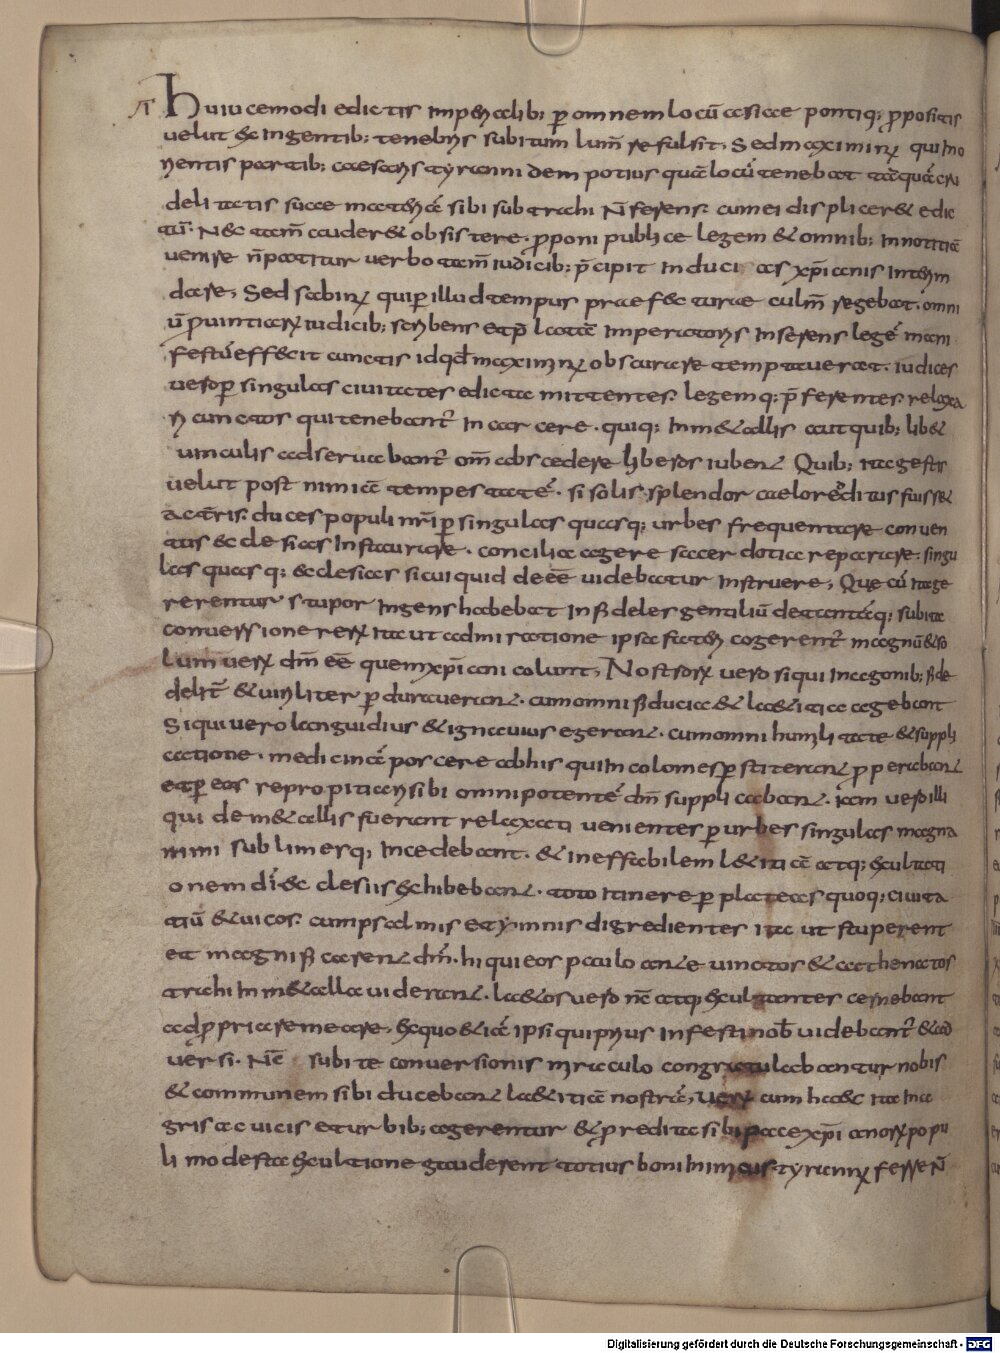 Huiucemodi edictis imperialib; p omnem locū asiae pontiq; ppositis
velut ex ingentib; tenebris subitum lum̄ refulsit, Sed maximinꝰ qui in o
rientis partib; caesaris tyrannidem potius quā locū tenebat tāquā cru
delitatis suae materiā sibi subtrahi n̄ ferens. cum ei displiceret edic
tū. Nec tam̄ auderet obsistere. pponi publice legem et omnib; in notitiā
venire n̄ patitur verbo tam̄ iudicib; p̄cipit induci as xp̄ianis interim
dare, Sed sabinꝰ qui p illud tempus praefecturae culm̄ regebat. omni
ū puintiarꝝ iudicib; scribens et p̄latā imperatoris inserens legē mani
festū effecit cunctis id qd̄ maximinꝰ obscurare temptaverat. iudices
vero p singulas civitates edicta mittentes. legemq; p̄ferentes relaxa
ri cunctos qui tenebant̄ in carcere. quiq; in metallis aut quib; libet
vinculis adservabant̄ om̄ abscedere liberos iubent Quib; ita gestis
velut post nimiā tempestatē. si solis splendor caelo redditus fuisset
ac tris. duces populi nr̄i p singulas quasq; urbes frequentare conven
tus ecclesias instaurare. concilia agere sacerdotia reparare. singu
las quasq; ecclesias sicui quid deeē videbatur instruere, Que cū ita ge
rerentur stupor ingens habebat infideles gentiliū de tanta eq; subita
conversione rerꝝ ita ut admiratione ipsa facti cogerent̄ magnū et so
lum verꝝ dm̄ eē quem xp̄iani colunt, Nostrorꝝ vero siqui in agonib; fide
delit̄ et viriliter p duraverant. cum omni fiducia et laetitia agebant
Siqui vero languidius et ignavius egerant. cum omni humilitate et suppli
catione. medicinā poscere abhis qui incolomes pstiterant pperabant
et p eos repropitiari sibi omnipotentē dm̄ supplicabant. iam vero illi
qui de metallis fuerant relaxati venientes p urbes singulas magna
nimi sublimesq; incedebant. et ineffabilem letitiā atq; exultati
onem dī ecclesiis exhibebant. toto itinere p plateas quoq; civita
tiū et vicos. cum psalmis et ymnis digredientes ita ut stuperent
et magnificarent dm̄. hi qui eos paulo ante vinctos et cathenatos
trahi in metalla viderant. laetos vero nc̄ atq; exultantes cernebant
ad ppria remeare. ex quo etiā ipsi qui prius infesti nob̄ videbant̄ et ad
versi. Nc̄ subite conversionis miraculo congratulabantur nobis
et communem sibi ducebant laetitiā nostrā, Verꝝ cum haec ita in a
gris ac vicis et urbib; agerentur et p reddita sibi pace xp̄ianorꝝ popu
li modesta exultatione gauderent totius boni inimicus tyrannꝰ ferre n̄